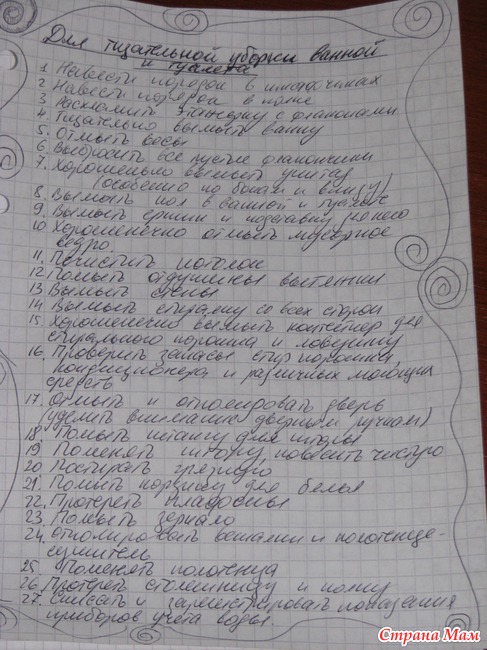 Для тщательной уборки ванной
и туалета
1 Навести порядок в шкафчиках
2 Навести порядок в полке
3 Расхламить этажерку с флаконами
4 Тщательно вымыть ванну
5. Отмыть весы
6. Выбросить все пустые флакончики
7. Хорошенько вымыть унитаз
(особенно по бокам и внизу)
8. Вымыть пол в ванной и туалете
9. Вымыть ершик и подставку для него
10 Хорошенечко отмыть мусорное
ведро.
11. Почистить потолок
12 Помыть отдушины вытяжки
13 Вымыть стены
14 Вымыть стиралку со всех сторон
15. Хорошенечко вымыть контейнер для
стирального порошка и ловушку
16. Проверить запасы стир порошка,
кондиционера и различных моющих
средств
17. Отмыть и отполировать дверь
(уделить внимание дверным ручкам)
18. Помыть штангу для шторы
19 Поменять штору, повесить чистую
20 Постирать грязную
21. Помыть корзину для белья
22. Протереть плафоны
23. Помыть зеркало
24. отполировать вешалки и полотенце-
сушитель
25 Поменять полотенца
26. Протереть столешницу и полку
27. Списать и зарегистрировать показания
приборов учета воды
Страна Мам